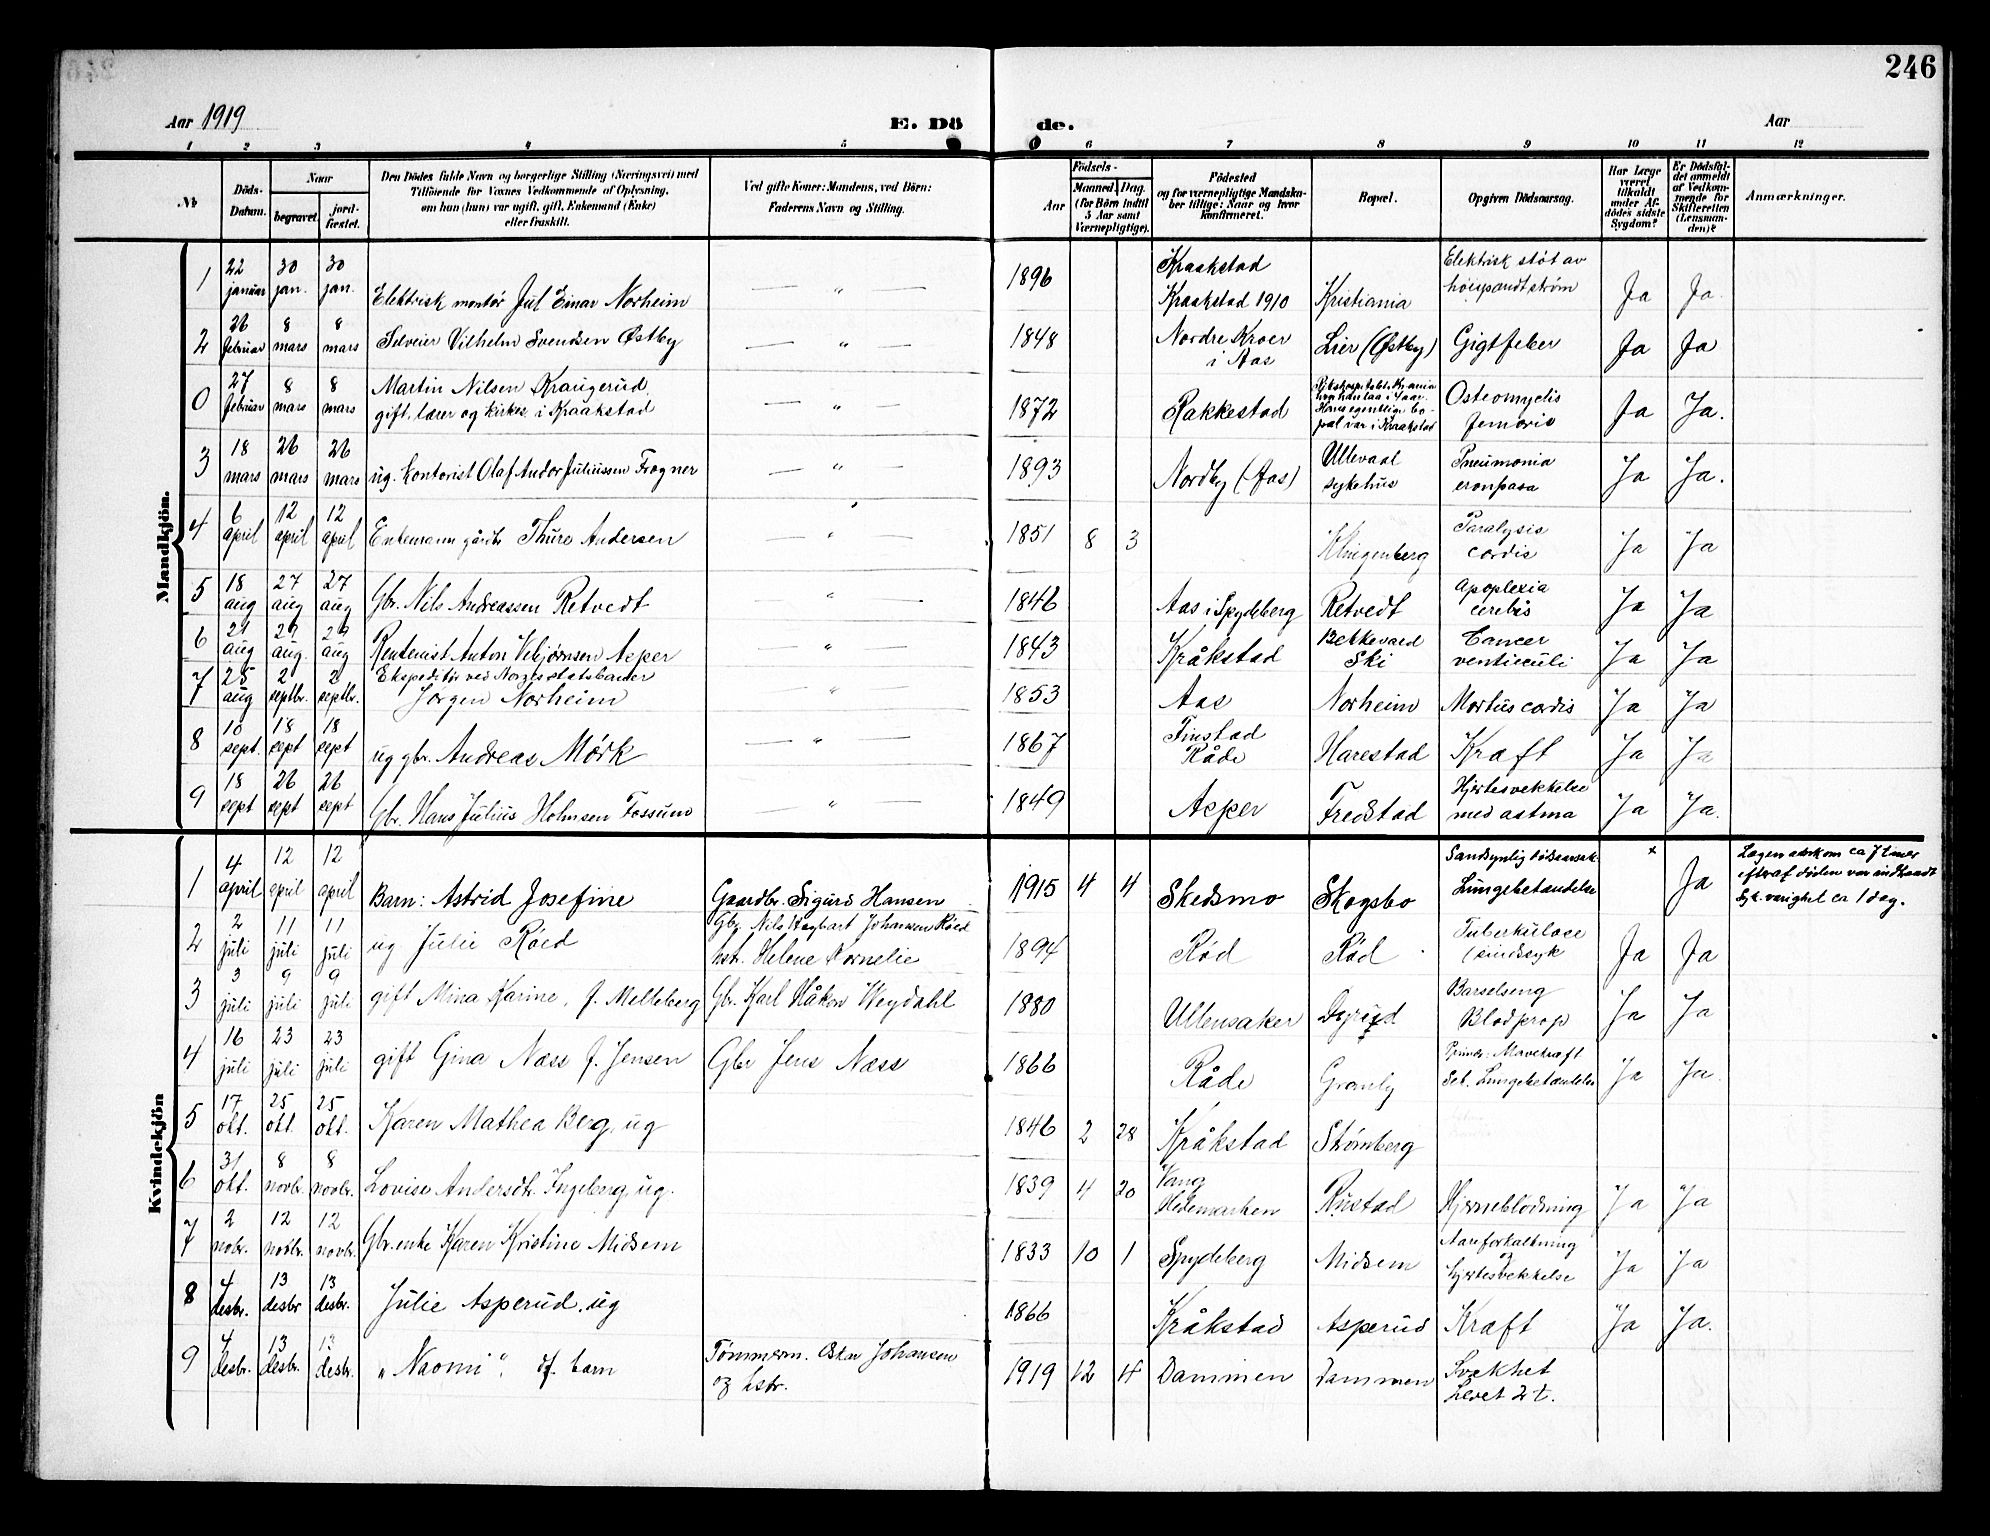 246
Aar 1919
E. Dö
de.
Aar
1 2 3 4 5 6 7 8 9 10 11 12
No
Döds-Datum.
Naar
begravet.
jord-fæstet.
Den Dödes fulde Navn og borgerlige Stilling (Næringsvei) med
Tilföiende for Voxnes Vedkommende af Oplysning,
om han (hun) var ugift, gift, Enkemand (Enke)
eller fraskilt.
Ved gifte Koner: Mandens, ved Börn:
Faderens Navn og Stilling.
Födsels-
Aar
Maaned. Dag.
(for Börn indtil
5 Aar samt
Værnepligtige).
Födested
og for værnepligtige Mandska-
ber tillige: Naar og hvor
konfirmeret.
Bopæl.
Opgiven Dödsaarsag.
Har Læge
været
tilkaldt
under Af-
dödes sidste
Sygdom?
Er Dödsfal-
det anmeldt
af Vedkom-
mende for
Skifteretten
(Lensman-
den)?
Anmærkninger.
Mandkjön.
1 22 januar 30 jan. 30 jan. Elektrisk montör Jul Einar Norheim — " — 1896 Kraakstad Kraakstad 1910 Kristiania Elektrisk stöt av höispændtström Ja Ja.
2 26 februar 8 mars 8 mars Selveier Vilhelm Svendsen Østby — " — 1848 Nordre Kroer i Aas Lier (Østby) Gigtfeber Ja Ja
0 27 februar 8 mars 8 mars Martin Nilsen Kraugerud, gift, lærer og kirkes. i Kraakstad — " — 1872 Rakkestad Hans egentlige bo-pæl var i Kraakstad Osteomyelis femoris Ja Ja.
3 18 mars 26 mars 26 mars ug. kontorist Olaf Andor Juliussen Frogner — " — 1893 Nordby (Aas) Ullevaal sykehus Pneumonia Ja Ja.
4 6 april 12 april 12 april Enkemann gårdbr Thure Andersen — " — 1851 8 3 Klingenberg Paralysis cordis Ja Ja
5 18 aug 27 aug 27 aug Gbr. Nils Andreassen Retvedt — " — 1846 Aas i Spydeberg Retvedt Apoplexia cerebri Ja Ja
6 21 aug 29 aug 29 aug Rentenist Anton Vebjørnsen Asper — " — 1843 Kråkstad Bekkevard Ski Cancer ventriculi Ja Ja
7 25 aug 2 septbr. 2 septbr. Ekspeditör ved Norges statsbaner Jörgen Norheim — " — 1853 Aas Norheim Mortus cordis Ja Ja
8 10 sept. 18 sept 18 sept ug gbr. Andreas Mörk — " — 1867 Finstad Råde Harestad Kraft Ja Ja
9 18 sept 26 sept 26 sept Gbr. Hans Julius Holmsen Fossum — " — 1849 Asper Fredstad Hjertesvekkelse med astma Ja Ja.
Kvindekjön
1 4 april 12 april 12 april Barn: Astrid Josefine Gaardbr. Sigurd Hansen 1915 4 4 Skedsmo Skogsbo Sandsynlig dödsaarsak: Lungebetændelse x Ja Lægen ankom ca 7 timer efteraf döden var indtraadt Syk. varighet ca 1 dag.
2 2 juli 11 juli 11 juli ug Julie Röed Gbr. Nils Hagbart Johansen Röed hstr. Helene Kornelie 1894 Röd Röd Tuberkulose (sindssyk Ja Ja
3 3 juli 9 juli 9 juli gift Mina Karine, f. Melleberg Gbr. Karl Håkon Weydahl 1880 Ullensaker Barselseng Blodprop Ja Ja
4 16 juli 23 juli 23 juli gift Gina Næss f. Jensen Gbr Jens Næss 1866 Råde Granly Primær: Mavekræft Sek. Lungebetændelse Ja Ja.
5 17 okt. 25 okt. 25 okt. Karen Mathea Berg, ug 1846 2 28 Kråkstad Strömberg
6 31 okt. 8 novbr. 8 novbr. Lovise Andersdtr. Ingeberg, ug. 1839 4 20 Vang Hedemarken Rustad Hjerneblödning Ja Ja
7 2 nobr. 12 novbr. 12 novbr. Gbr. enke Karen Kristine Midsem 1833 10 1 Spydeberg Midsem Aareforkalkning Hjertesvekkelse Ja Ja
8 4 desbr. 13 desbr 13 desbr. Julie Asperud, ug 1866 Kråkstad Asperud Kræft Ja Ja.
9 4 desbr. 13 desbr. 13 desbr. "Naomi". df. barn Tömmerm. Oskar Johansen og hstr. 1919 12 4 Dammen Dammen Svakhet Levet 2 t.